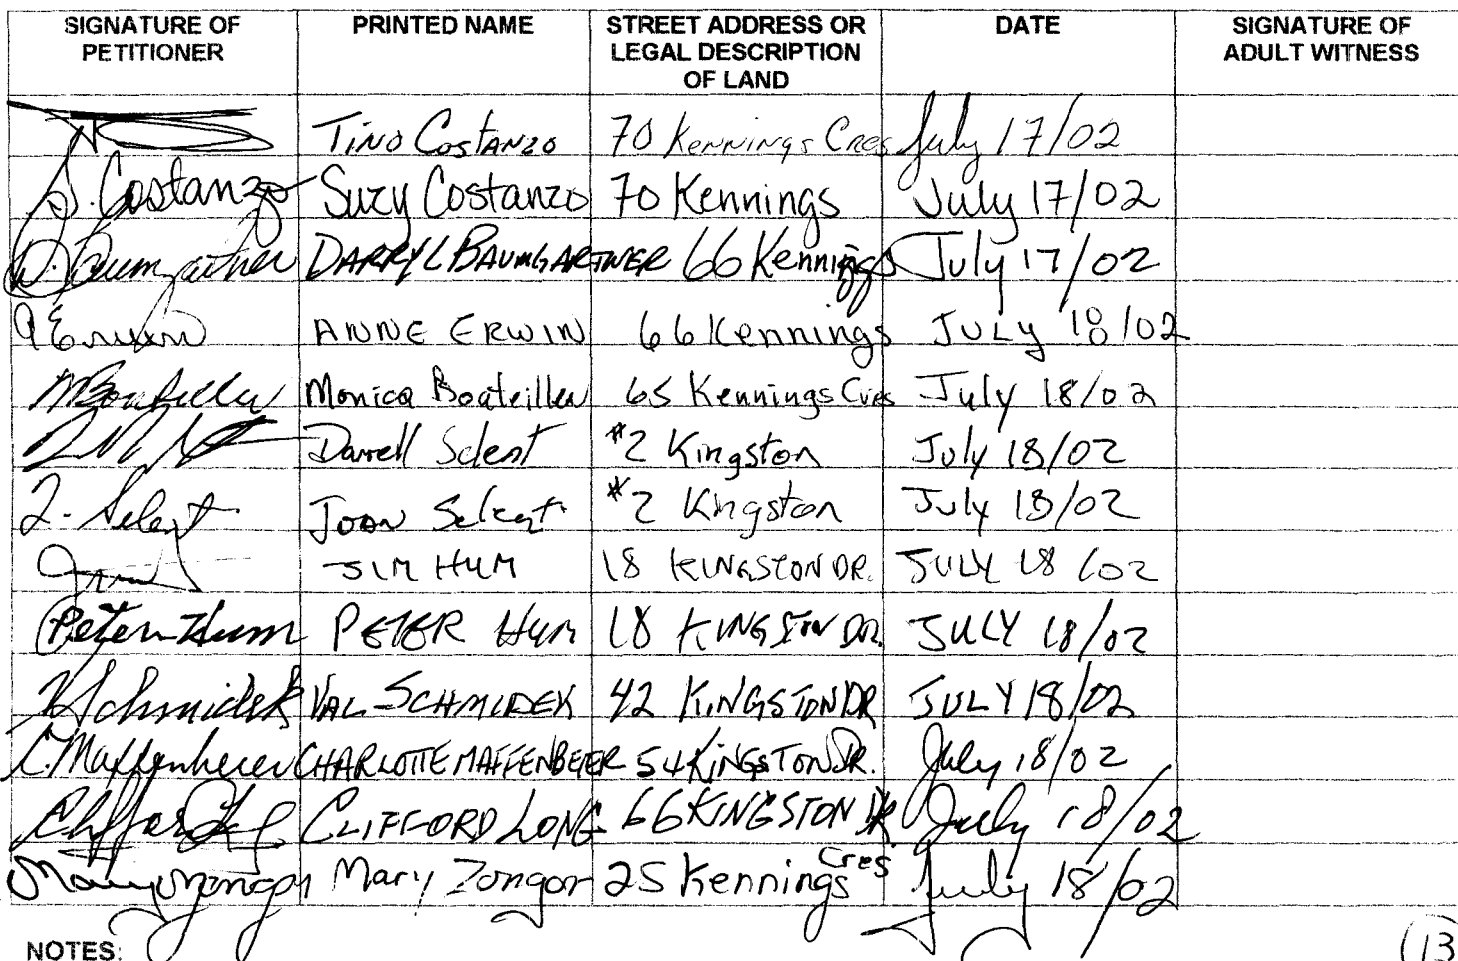 SIGNATURE OF PETITIONER PRINTED NAME STREET ADDRESS OR LEGAL DESCRIPTION OF LAND DATE SIGNATURE OF ADULT WITNESS
Tino Costanzo 70 Kennings Cres July 17/02
S. Costanzo Suzy Costanzo 70 Kennings July 17/02
D. Baumgartner DARRYL BAUMGARTNER 66 Kennings July 17/02
A Erwin ANNE ERWIN 66 Kennings JULY 18/02
Monica 65 Kennings Cres July 18/02
Darrell Selent #2 Kingston July 18/02
J. Selent Joan Selent #2 Kingston July 18/02
JIM HUM 18 KINGSTON DR. JULY 18/02
Peter Hum PETER HUM 18 KINGSTON DR. JULY 18/02
V Schmidek VAL SCHMIDEK 42 KINGSTON DR JULY 18/02
C. Maffenbeier CHARLOTTE MAFFENBEIER 54 KINGSTON DR. July 18/02
Clifford Long CLIFFORD LONG 66 KINGSTON DR July 18/02
Mary Zongor Mary Zongor 25 Kennings Cres July 18/02
NOTES: 13